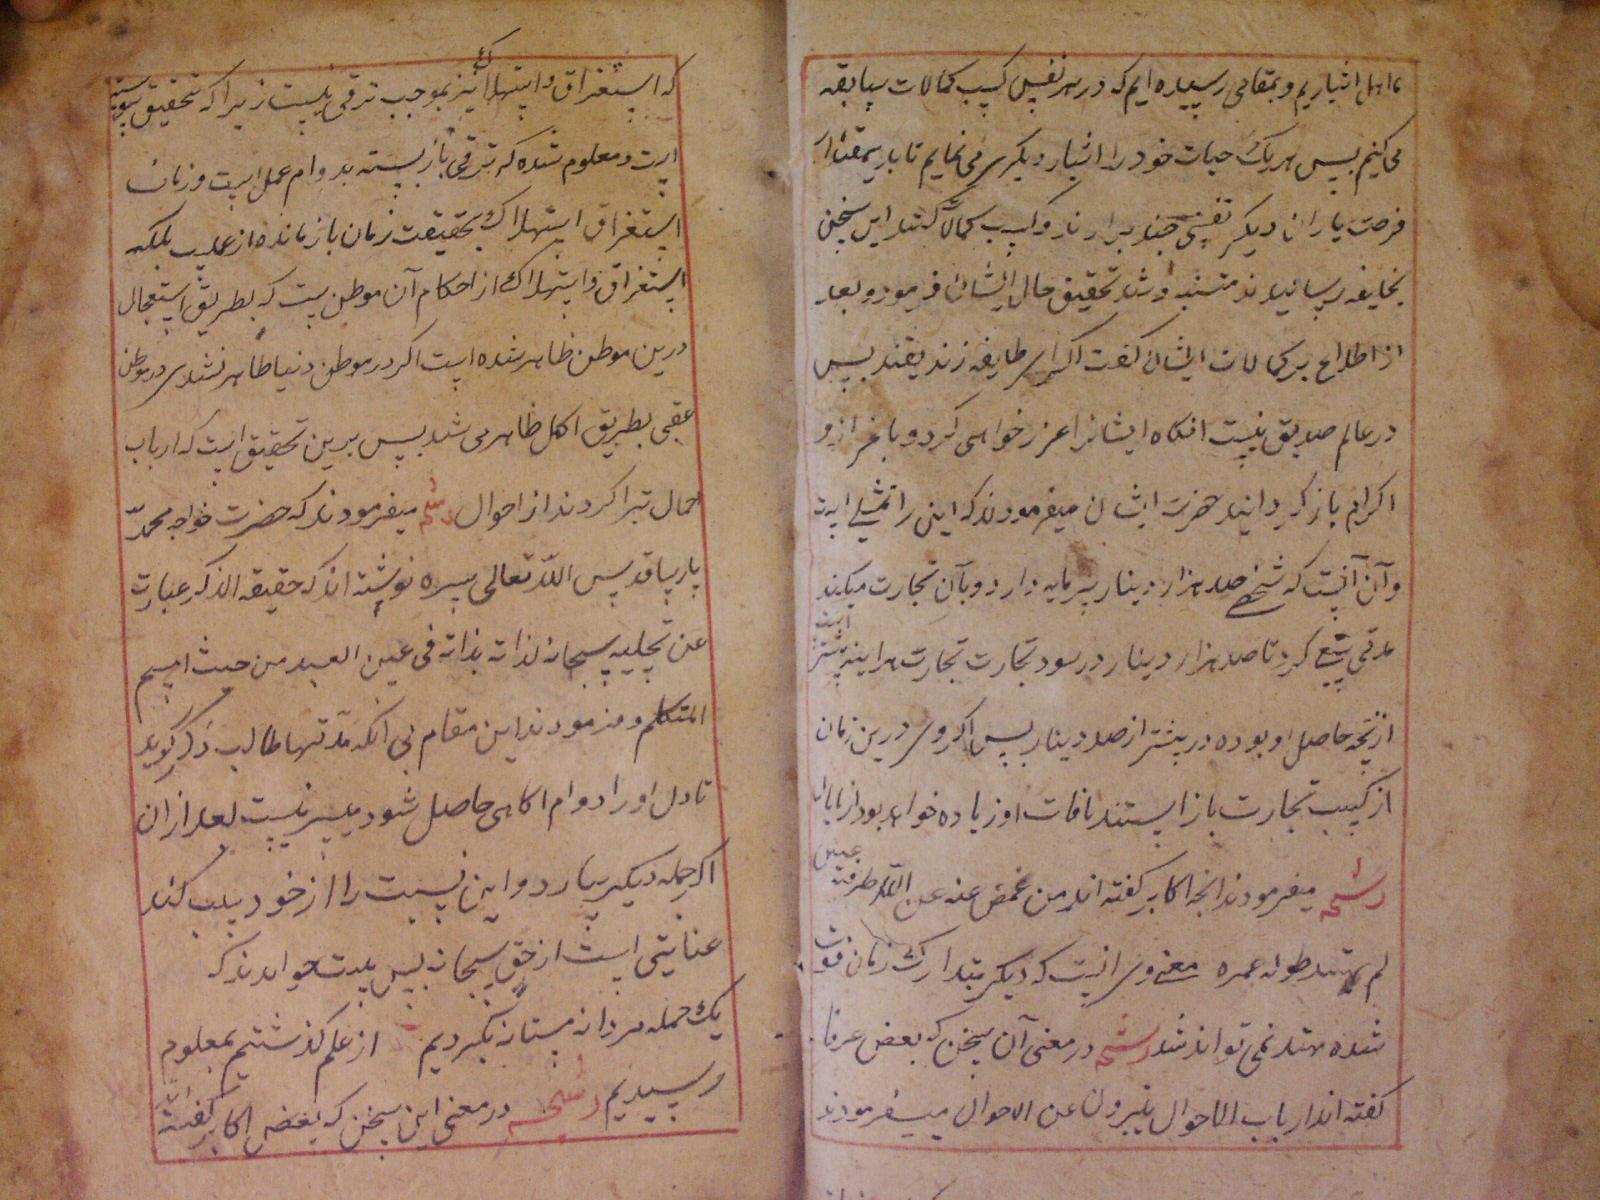 ما اهل ایثاریم و بمقامی رسیده ایم که در هر نفس کسب کمالات سابقه
می کنیم پس هر یک حیات خود را ایثار دیگری می نمایم تا بدین مقدار
فرصت یاران دیگر نفسی چند برارند و کسب کمالات کنند این سخن
بخلیفه رسانیدند متنبه شد و تحقیق حال ایشان فرمود و بعد
از اطلاع بر کمالات ایشان گفت اگر این طایفه زندیقند پس
در عالم صدیق نیست آنگاه ایشانرا عذر خواهی کرد و با عزاز و
اکرام باز گردانید حضرت ایشان میفرمودند که اینی را تمثیلی است
و آن آنست که شخصی صد هزار دینار سرمایه دارد و بآن تجارت میکند
مدتی سعی کرد تا صد هزار دینار در سود تجارت هر اینه بیشتر است
از آنچه حاصل او بوده در بیشتر از صد دینار پس اگر وی درین زمان
از کسب تجارت باز ایستد مافات او زیاده خواهد بود از
رشحه میفرمودند آنچه اکابر گفته اند من غمض عینه عن الله طرفة
لم یهتد طول عمره معنی وی آنست که دیگر بتدارک زمان فوت
شده مهتد نمی تواند شد رشحه در معنی آن سخن که بعض عرفا
گفته اند ارباب الاحوال یتبرون عن الاحوال میفرمودند
که استغراق و استهلاک نیز بموجب ترقی نیست زیرا که تحقیق پیوسته
است و معلوم شده که ترقی باز بسته بدوام عمل است و زمان
استغراق استهلاک بحقیقت زمان باز مانده از عمل بلکه
استغراق و استهلاک از احکام آن موطن ست که بطریق استعجال
درین موطن ظاهر شده است اگر در موطن دنیا ظاهر نشدی در موطن
عقبی بطریق اکمل ظاهر می شد پس برین تحقیق است که ارباب
حال تبرا کردند از احوال رشحه میفرمودند که حضرت خواجه محمد
پارسا قدس الله تعالی سره نوشته اند که حقیقه الذکر عبارت
عن تجلیه سبحانه لذاته بذاته فی عین العبد من حیث اسم
المتکلم و میفرمودند این مقام بی آنکه مدتها طالب ذکر گوید
تا دل او را دوام آگاهی حاصل شود میسر نیست بعد از آن
اگر حمله دیگر بیارد و این نسبت را از خود سلب کند
عنایتی است از حق سبحانه پس بیت خواندند که
یک حمله مردانه مستانه بکردیم از علم گذشتیم بمعلوم
رسیدیم رشحه در معنی این سخن که بعض اکابر گفته اند